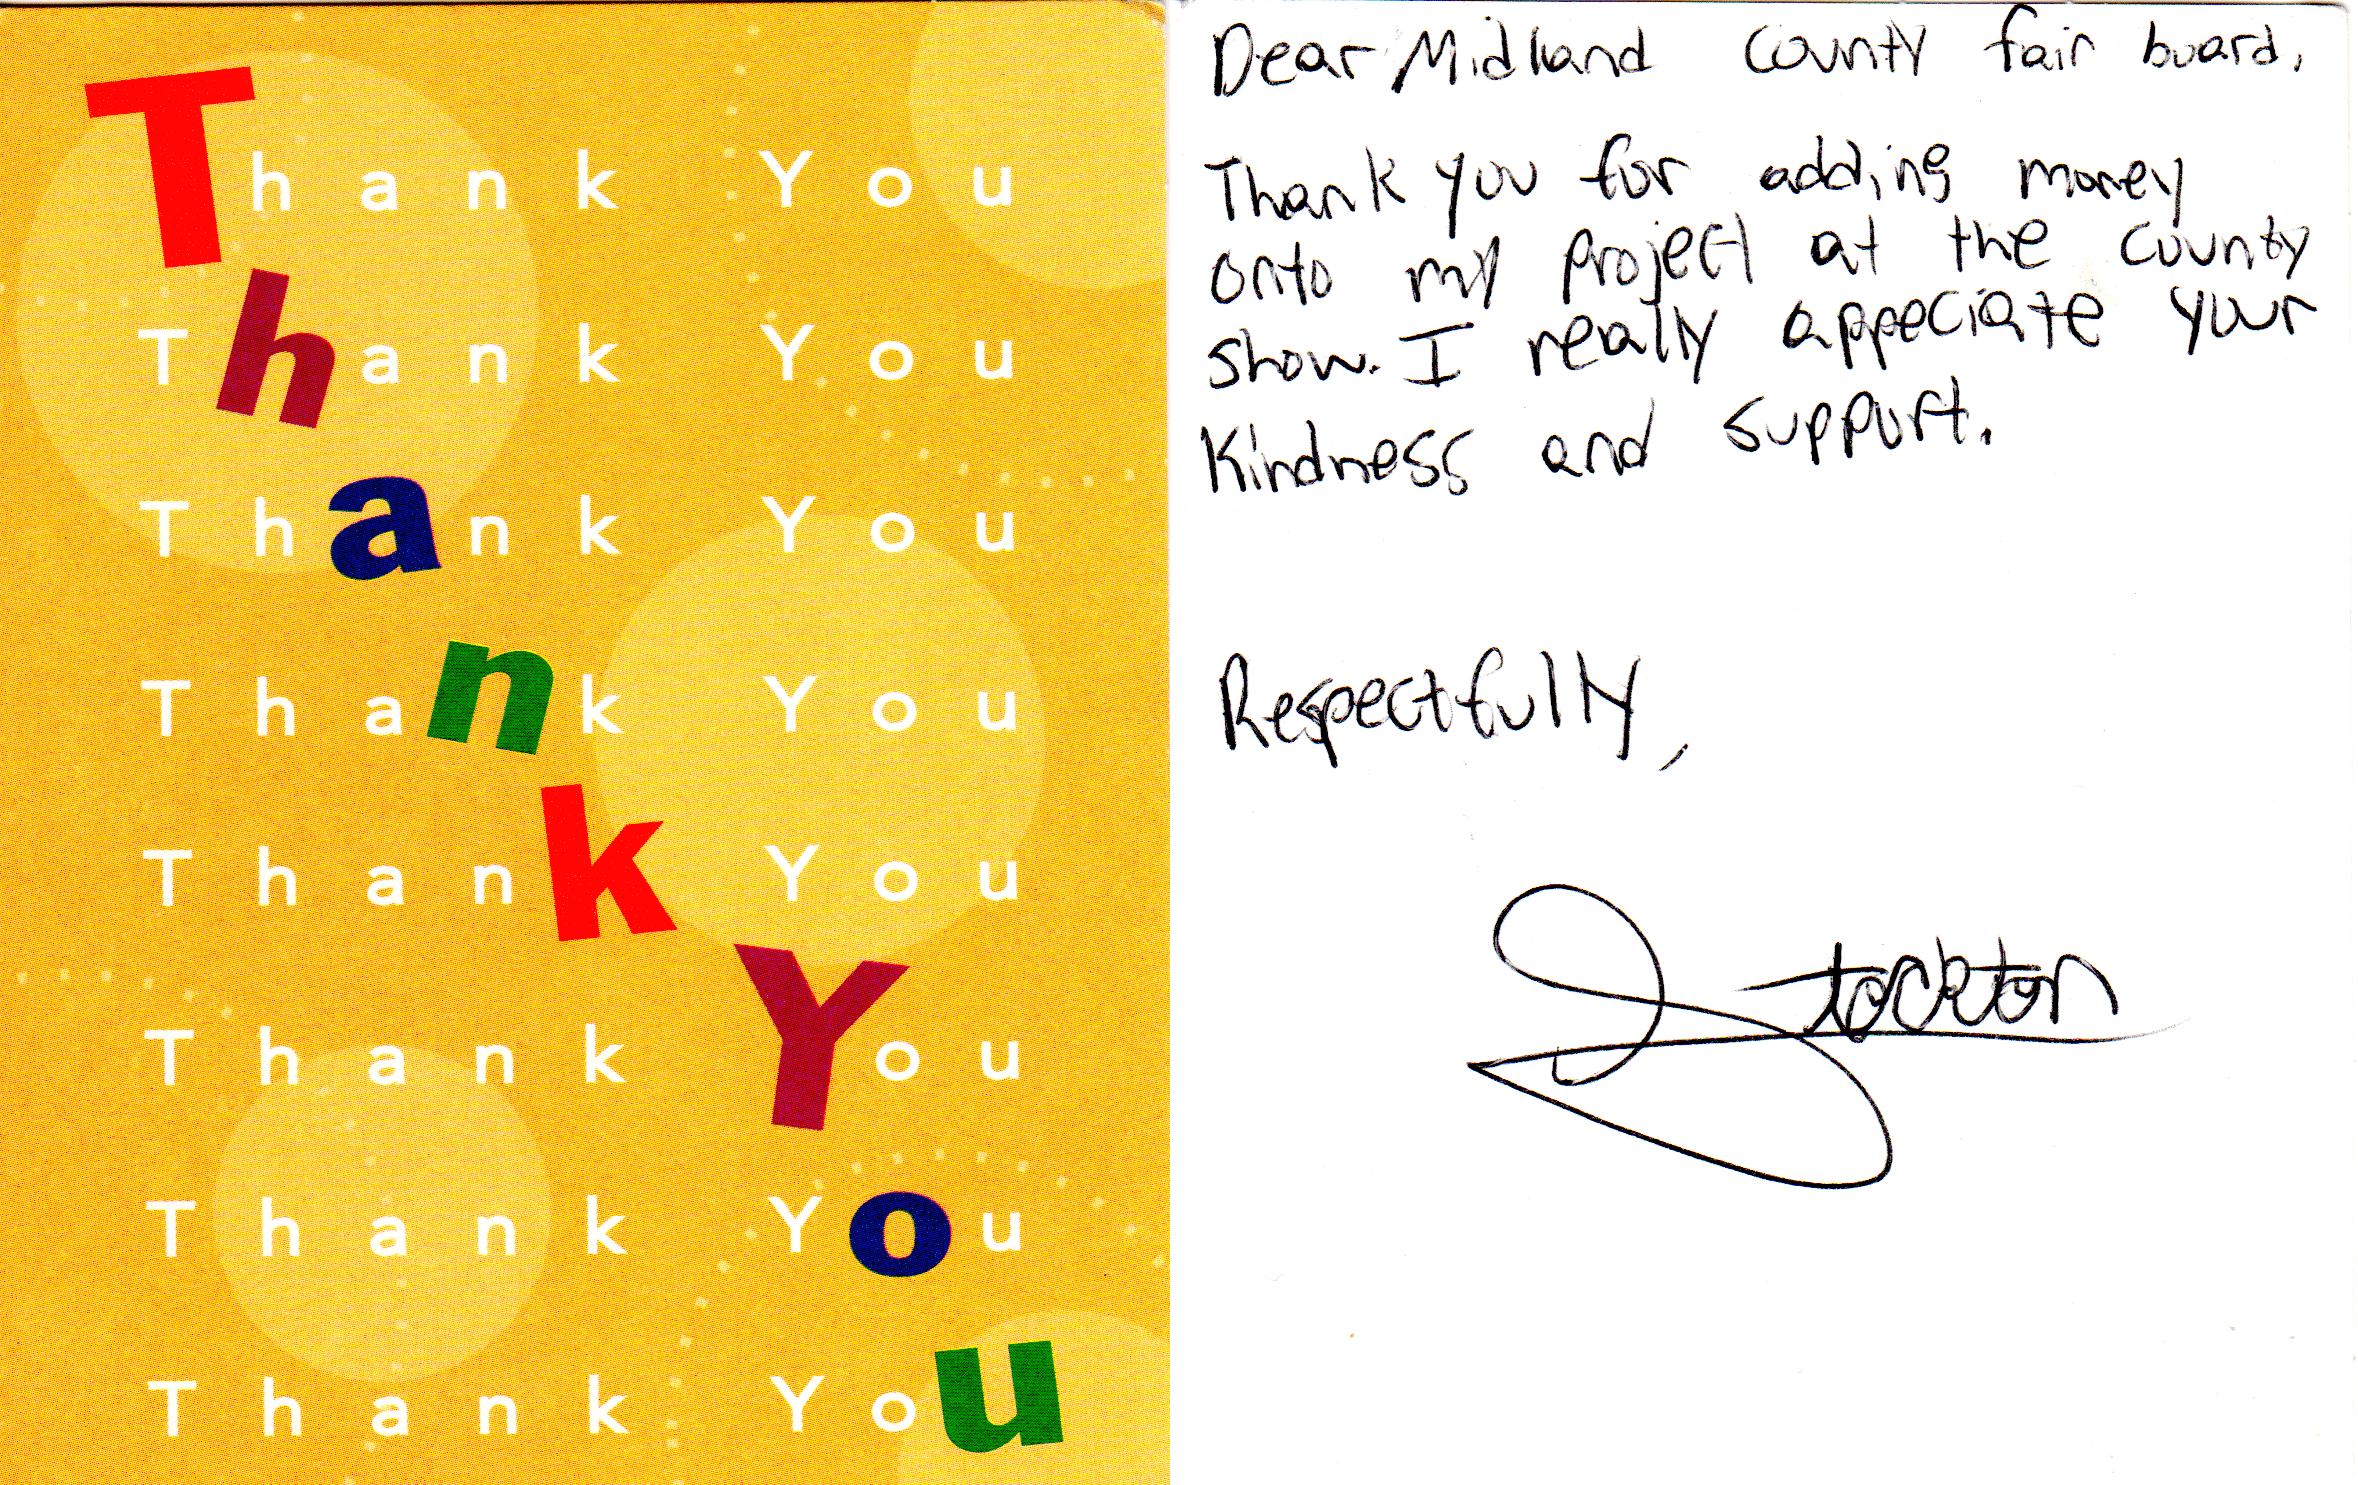 Thank You
Thank You
Thank You
Thank You
Thank You
Thank You
Thank You
Thank You
Dear Midland County fair board,
Thank you for adding money
onto my project at the county
show. I really appeciate your
Kindness and support.
Respectfully,
Stockton